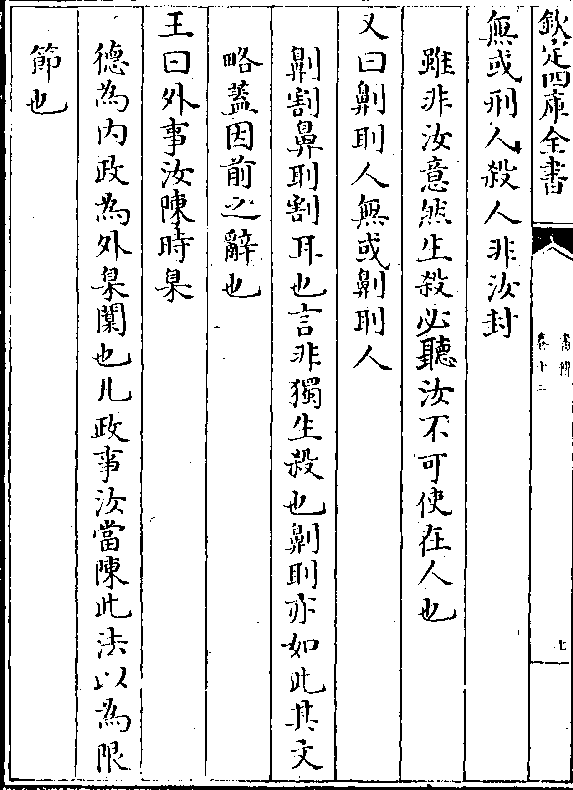 欽定四庫全書
書傳
卷十二
七
無或刑人殺人非汝封
雖非汝意然生殺必聽汝不可使在人也
又曰劓刵人無或劓刵人
劓割鼻刵割耳也言非獨生殺也劓刵亦如此其文
略蓋因前之辭也
王曰外事汝陳時臬
德為内政為外臬闑也凡政事汝當陳此法以為限
節也